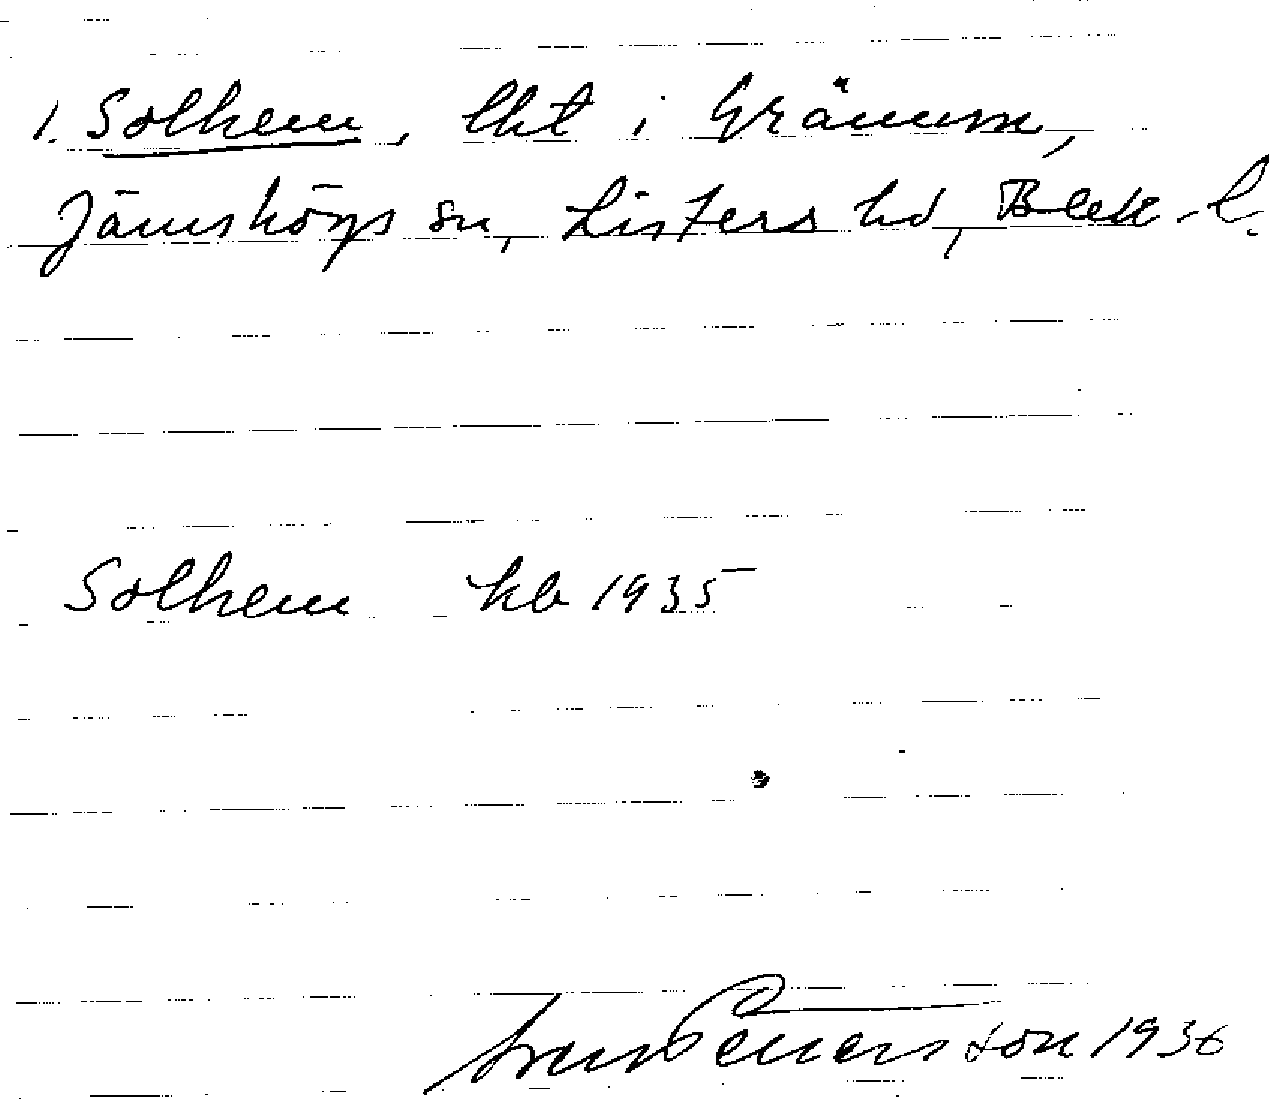 1. Solhem, lht i Gränum,
Jämshögs sn, Listers hd, Blek. l.
Solhem kb 1935
Pettersson 1936